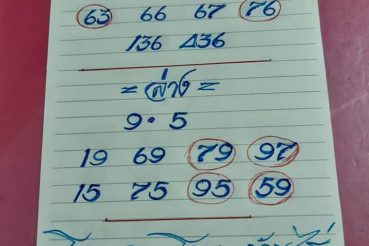 63 66 67 76
136 436
= ล่าง =
9 • 5
19 69 79 97
15 75 95 59